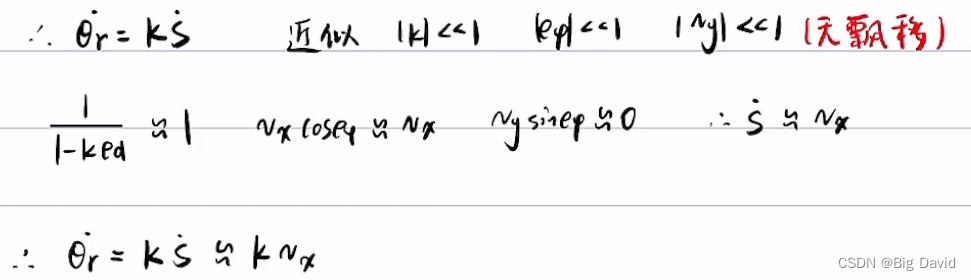 ∴ θ̇r = kṡ 近似 |k|<<1 |eφ|<<1 |vy|<<1 (无飘移)
1/(1-ked) ≈ 1 vx coseφ ≈ vx vy sineφ ≈ 0 ∴ ṡ ≈ vx
∴ θ̇r = kṡ ≈ kvx
CSDN @Big David